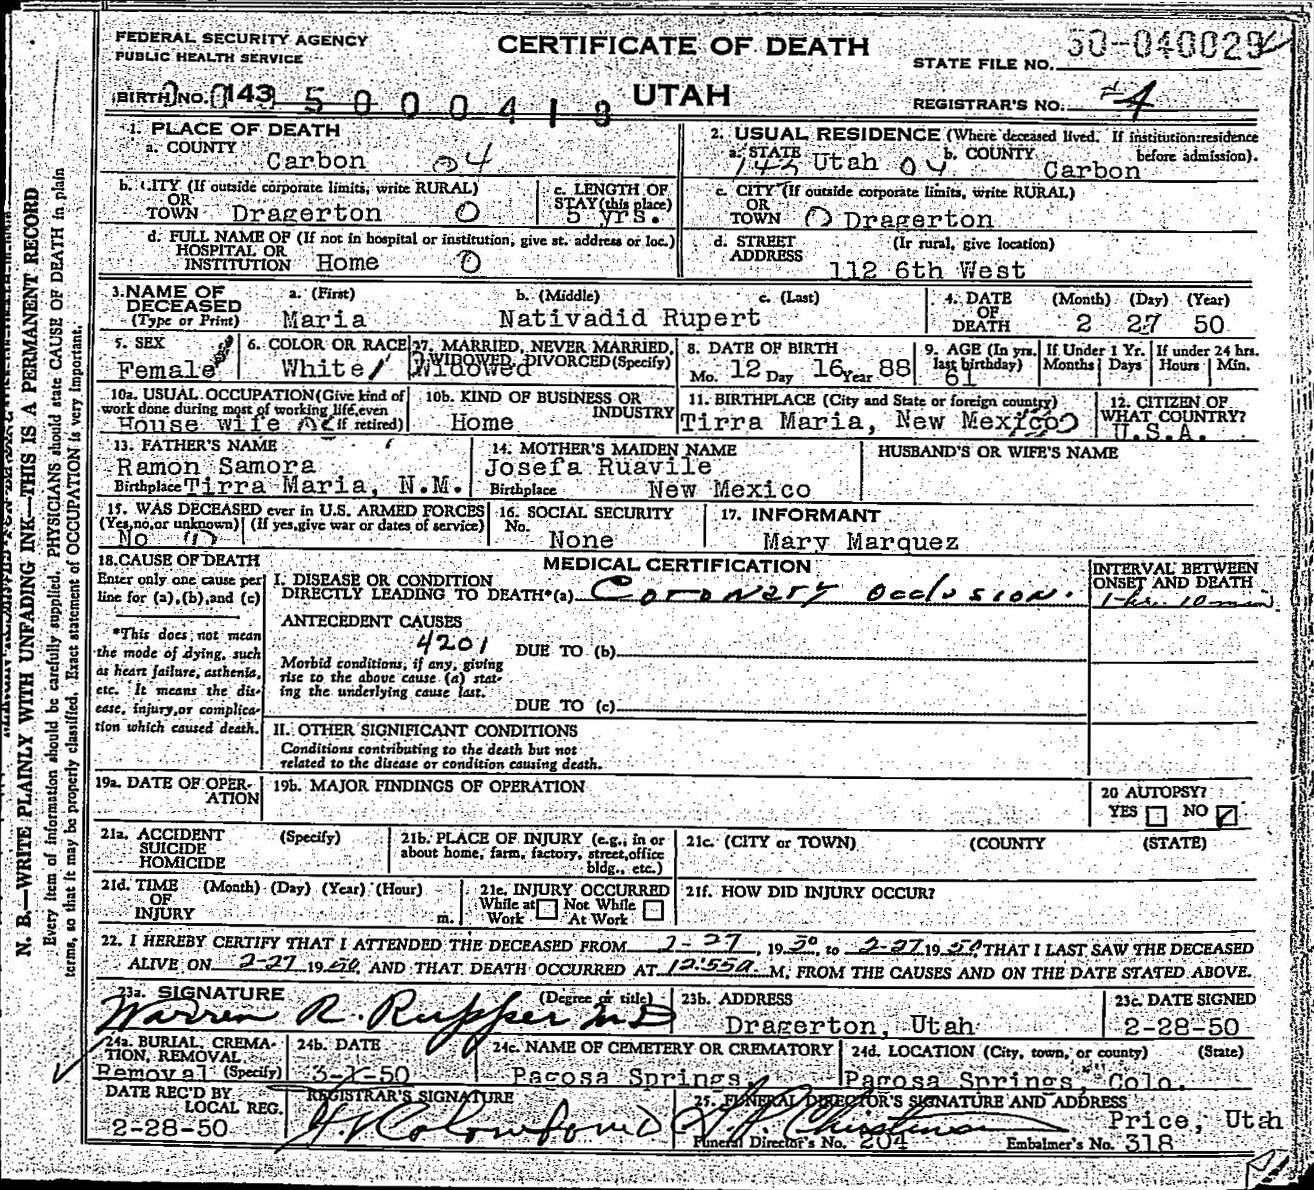 FEDERAL SECURITY AGENCY
PUBLIC HEALTH SERVICE
CERTIFICATE OF DEATH
UTAH
STATE FILE NO. 50-040029
BIRTH NO. 143 5000418
REGISTRAR'S NO. 4
1. PLACE OF DEATH
a. COUNTY Carbon 04
2. USUAL RESIDENCE (Where deceased lived. If institution: residence before admission).
a. STATE Utah 04 b. COUNTY Carbon
b. CITY (If outside corporate limits, write RURAL) OR TOWN Dragerton 0
c. LENGTH OF STAY (this place) 5 yrs.
c. CITY (If outside corporate limits, write RURAL) OR TOWN 0 Dragerton
d. FULL NAME OF (If not in hospital or institution, give st. address or loc.) HOSPITAL OR INSTITUTION Home 0
d. STREET ADDRESS (If rural, give location) 112 6th West
3. NAME OF DECEASED (Type or Print)
a. (First) Maria
b. (Middle) Nativadid
c. (Last) Rupert
4. DATE OF DEATH (Month) (Day) (Year) 2 27 50
5. SEX Female
6. COLOR OR RACE White
7. MARRIED, NEVER MARRIED, WIDOWED, DIVORCED (Specify) Widowed
8. DATE OF BIRTH Mo. 12 Day 16 Year 88
9. AGE (In yrs. last birthday) 61
If Under 1 Yr. Months Days
If under 24 hrs. Hours Min.
10a. USUAL OCCUPATION (Give kind of work done during most of working life, even if retired) House wife
10b. KIND OF BUSINESS OR INDUSTRY Home
11. BIRTHPLACE (City and State or foreign country) Tirra Maria, New Mexico
12. CITIZEN OF WHAT COUNTRY? U.S.A.
13. FATHER'S NAME Ramon Samora
Birthplace Tirra Maria, N.M.
14. MOTHER'S MAIDEN NAME Josefa Ruavile
Birthplace New Mexico
HUSBAND'S OR WIFE'S NAME
15. WAS DECEASED ever in U.S. ARMED FORCES (Yes, no, or unknown) (If yes, give war or dates of service) No
16. SOCIAL SECURITY No. None
17. INFORMANT Mary Marquez
18. CAUSE OF DEATH
Enter only one cause per line for (a), (b), and (c)
*This does not mean the mode of dying, such as heart failure, asthenia, etc. It means the disease, injury, or complication which caused death.
MEDICAL CERTIFICATION
INTERVAL BETWEEN ONSET AND DEATH
I. DISEASE OR CONDITION DIRECTLY LEADING TO DEATH*(a) Coronary occlusion. 1 hr. 10 min
ANTECEDENT CAUSES
4201
DUE TO (b)
Morbid conditions, if any, giving rise to the above cause (a) stating the underlying cause last.
DUE TO (c)
II. OTHER SIGNIFICANT CONDITIONS
Conditions contributing to the death but not related to the disease or condition causing death.
19a. DATE OF OPERATION
19b. MAJOR FINDINGS OF OPERATION
20 AUTOPSY? YES NO
21a. ACCIDENT SUICIDE HOMICIDE (Specify)
21b. PLACE OF INJURY (e.g., in or about home, farm, factory, street, office bldg., etc.)
21c. (CITY or TOWN) (COUNTY) (STATE)
21d. TIME OF INJURY (Month) (Day) (Year) (Hour) m.
21e. INJURY OCCURRED While at Work Not While At Work
21f. HOW DID INJURY OCCUR?
22. I HEREBY CERTIFY THAT I ATTENDED THE DECEASED FROM 2-27, 1950, to 2-27 1950, THAT I LAST SAW THE DECEASED
ALIVE ON 2-27 1950, AND THAT DEATH OCCURRED AT 12:55a. M, FROM THE CAUSES AND ON THE DATE STATED ABOVE.
23a. SIGNATURE (Degree or title) Warren R. Rupper MD
23b. ADDRESS Dragerton, Utah
23c. DATE SIGNED 2-28-50
24a. BURIAL, CREMATION, REMOVAL (Specify) Removal
24b. DATE 3-1-50
24c. NAME OF CEMETERY OR CREMATORY Pagosa Springs,
24d. LOCATION (City, town, or county) (State) Pagosa Springs, Colo.
DATE REC'D BY LOCAL REG. 2-28-50
REGISTRAR'S SIGNATURE
25. FUNERAL DIRECTOR'S SIGNATURE AND ADDRESS Price, Utah
Funeral Director's No. 204
Embalmer's No. 318
N. B.—WRITE PLAINLY WITH UNFADING INK—THIS IS A PERMANENT RECORD
Every item of information should be carefully supplied. PHYSICIANS should state CAUSE OF DEATH in plain
terms, so that it may be properly classified. Exact statement of OCCUPATION is very important.